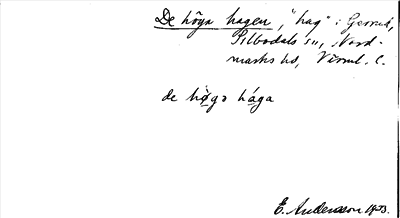 De höga hagen, "hag" i Gersrud,
Silbodals sn, Nord-
marks hd, Värml. l.
de høgə hága
E. Andersson 1923.